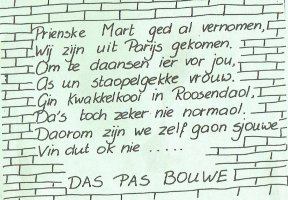 Prienske Mart ged al vernomen,
Wij zijn uit Parijs gekomen.
Om te daansen ier vor jou,
As un staopelgekke vrouw.
Gin Kwakkelkooi in Roosendaal,
Da's toch zeker nie normaal.
Daorom zijn we zelf gaon sjouwe
Vin dut ok nie .....
DAS PAS BOUWE!